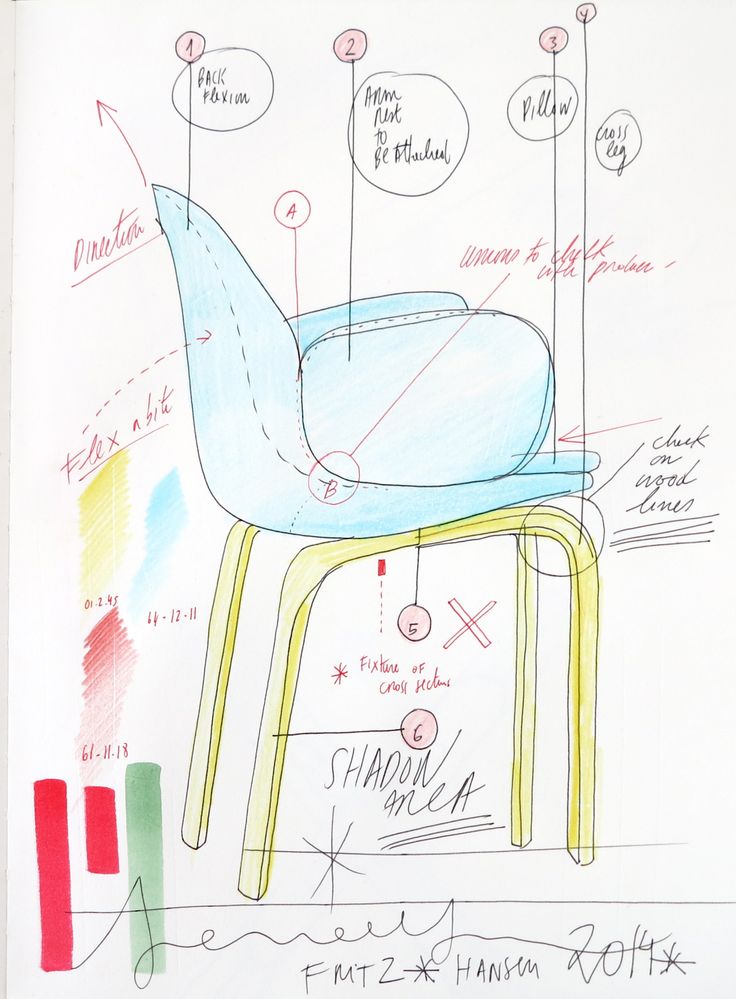 1
2
3
4
BACK
Flexion
ARM
REST
TO
BE Attached
Pillow
cross
leg
A
Direction
unions to check
with producer
Flex a bit
B
check
on
wood
lines
01-2-45
64-12-11
5
* Fixture of
cross sections
61-11-18
6
SHADOW
AREA
FRITZ * HANSEN 2014*